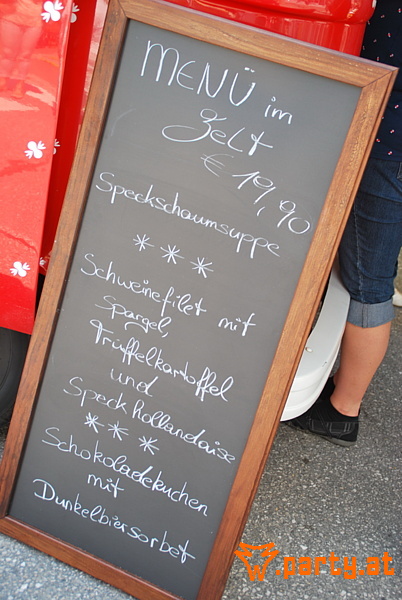 MENÜ im
Zelt
€ 19,90
Speckschaumsuppe
***
Schweinefilet mit
Spargel,
Trüffelkartoffel
und
Speckhollandaise
***
Schokoladekuchen
mit
Dunkelbiersorbet
W.party.at